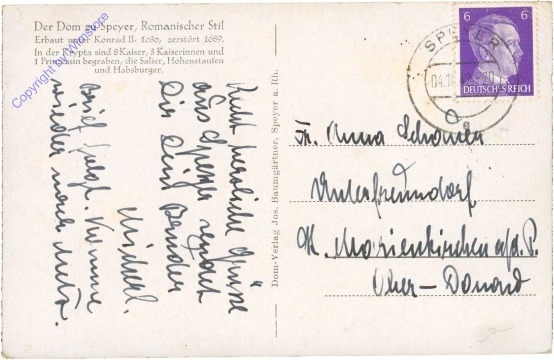 Der Dom zu Speyer, Romanischer Stil
Erbaut unter Konrad II. 1030, zerstört 1689.
In der Krypta sind 8 Kaiser, 3 Kaiserinnen und
1 Prinzessin begraben, die Salier, Hohenstaufen
und Habsburger.
Copyright by
Recht herzliche Grüße
aus Speyer
Dir Dein Bruder
Michael.
Brief folgt. Komme
wieder nach Metz.
Dom-Verlag Jos. Baumgärtner, Speyer a. Rh.
6 6
DEUTSCHES REICH
SPEYER
04.10.
a
Fr. Anna
Unterfreundorf
Marienkirchen a/d. P.
Ober-Donau